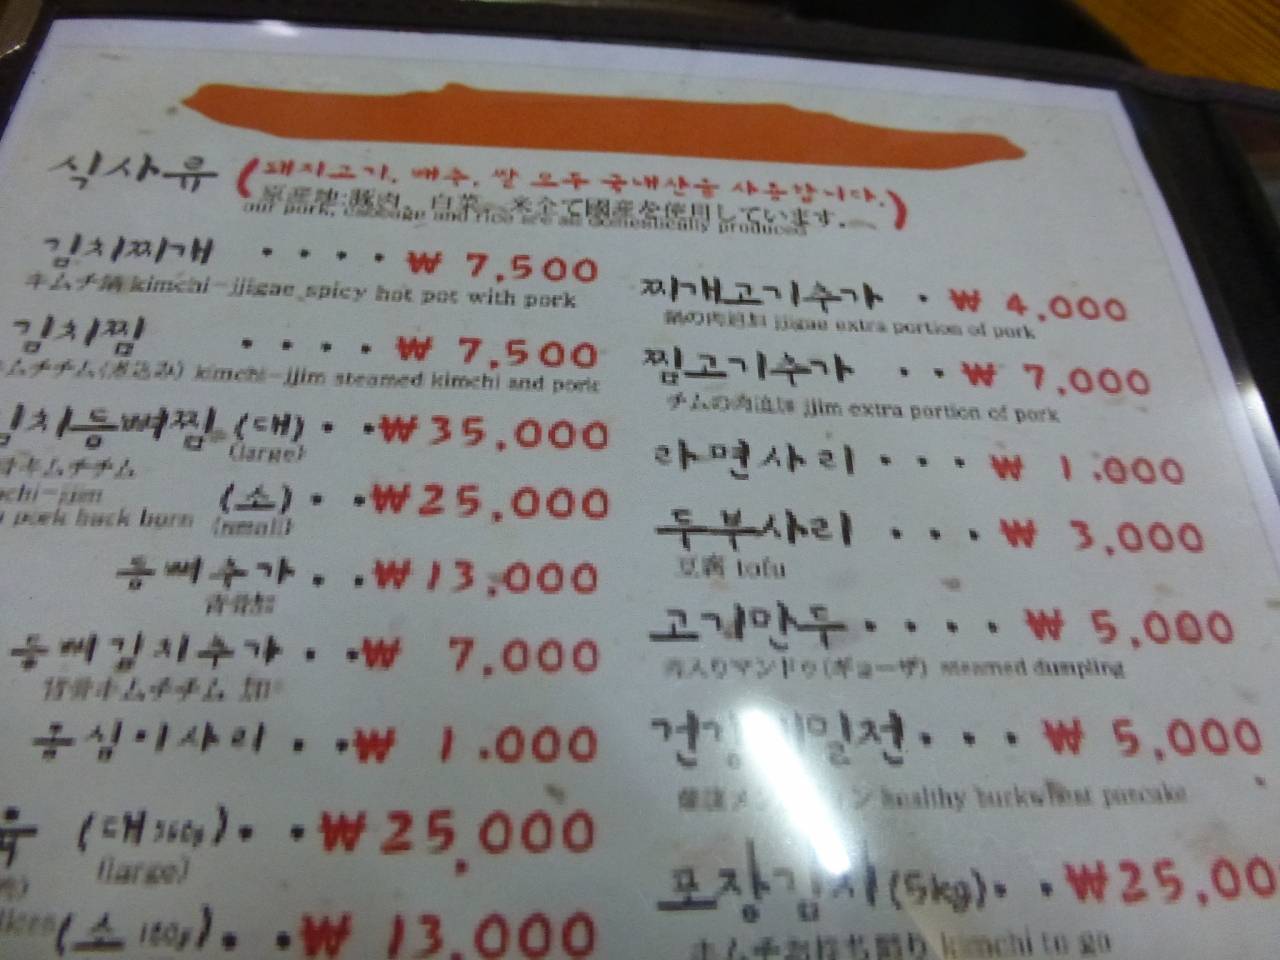 식사류 (돼지고기, 배추, 쌀 모두 국내산을 사용합니다.)
原産地:豚肉、白菜、米全て國産を使用しています.
our pork, cabbage and rice are all domestically produced
김치찌개 ・・・・₩ 7,500
キムチ鍋 kimchi-jjigae spicy hot pot with pork
김치찜 ・・・・₩ 7,500
ムチチム(煮込み) kimchi-jjim steamed kimchi and pork
김치등뼈찜 (대)・・₩35,000
(large)
骨キムチチム
chi-jjim
(소)・・₩25,000
pork back born (small)
등뼈추가・・₩13,000
등뼈김치추가・・₩ 7,000
背骨キムチチム 加
옹심이사리・・₩ 1,000
(대 360g)・・₩25,000
(large)
(소 180g)・・₩13,000
찌개고기추가 ・₩ 4,000
鍋の肉追加 jjigae extra portion of pork
찜고기추가 ・・₩ 7,000
チムの肉追加 jjim extra portion of pork
라면사리・・・₩ 1,000
두부사리・・・₩ 3,000
豆腐 tofu
고기만두・・・・₩ 5,000
肉入りマンドゥ(ギョーザ) steamed dumpling
건강 밀전・・・₩ 5,000
healthy buckwheat pancake
포장김치(5kg)・・₩25,00
キムチお持ち帰り kimchi to go